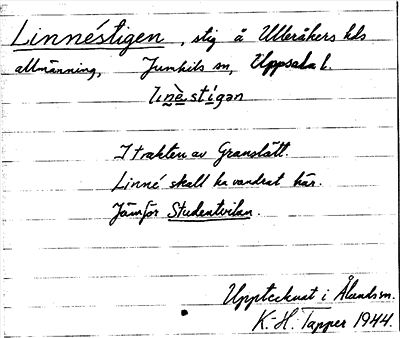 Linnéstigen, stig å Ulleråkers hds
allmänning, Jumkils sn, Uppsala l.
linèstigan
I trakten av Granslätt.
Linné skall ha vandrat här.
Jämför Studentvilan.
Upptecknat i Ålands sn.
K. H. Tapper 1944.